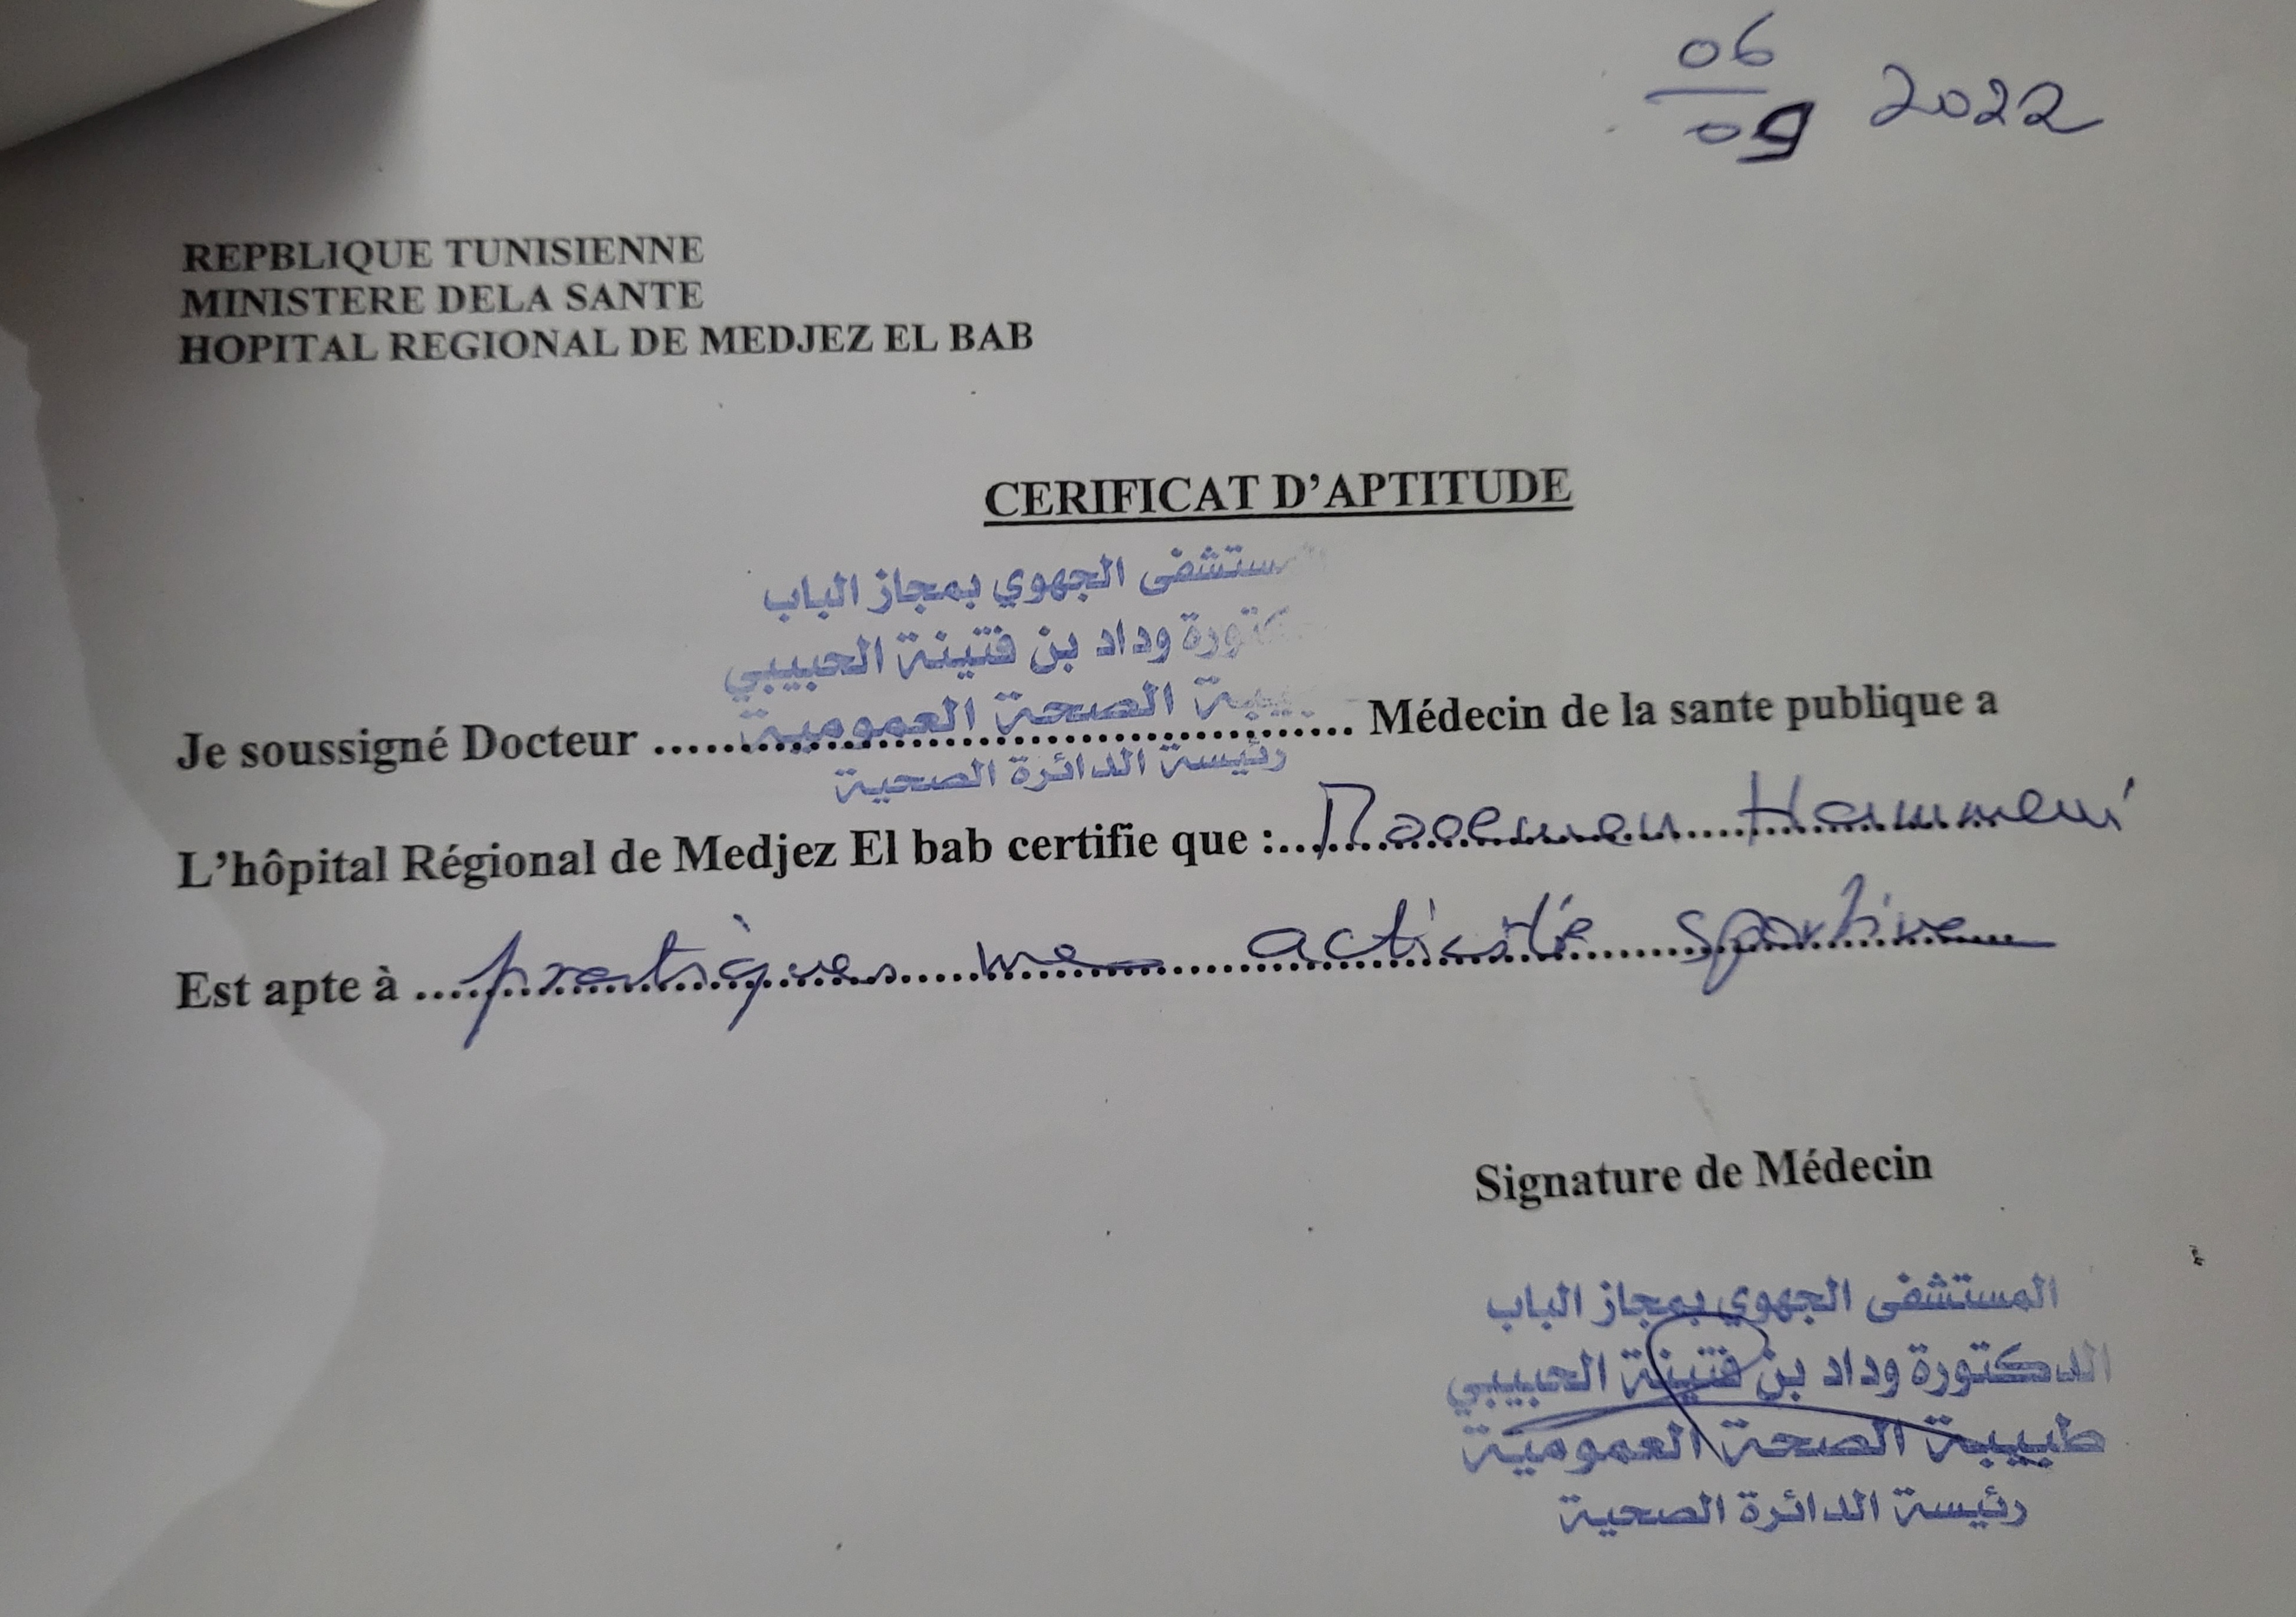 06
09 2022
REPBLIQUE TUNISIENNE
MINISTERE DELA SANTE
HOPITAL REGIONAL DE MEDJEZ EL BAB
CERIFICAT D'APTITUDE
المستشفى الجهوي بمجاز الباب
وداد بن فتينة الحبيبي
الصحة العمومية
رئيسة الدائرة الصحية
Je soussigné Docteur ................................................ Médecin de la sante publique a
L'hôpital Régional de Medjez El bab certifie que : Hammemi
Est apte à pratiquer une activité sportive
Signature de Médecin
المستشفى الجهوي بمجاز الباب
الدكتورة وداد بن فتينة الحبيبي
طبيبة الصحة العمومية
رئيسة الدائرة الصحية